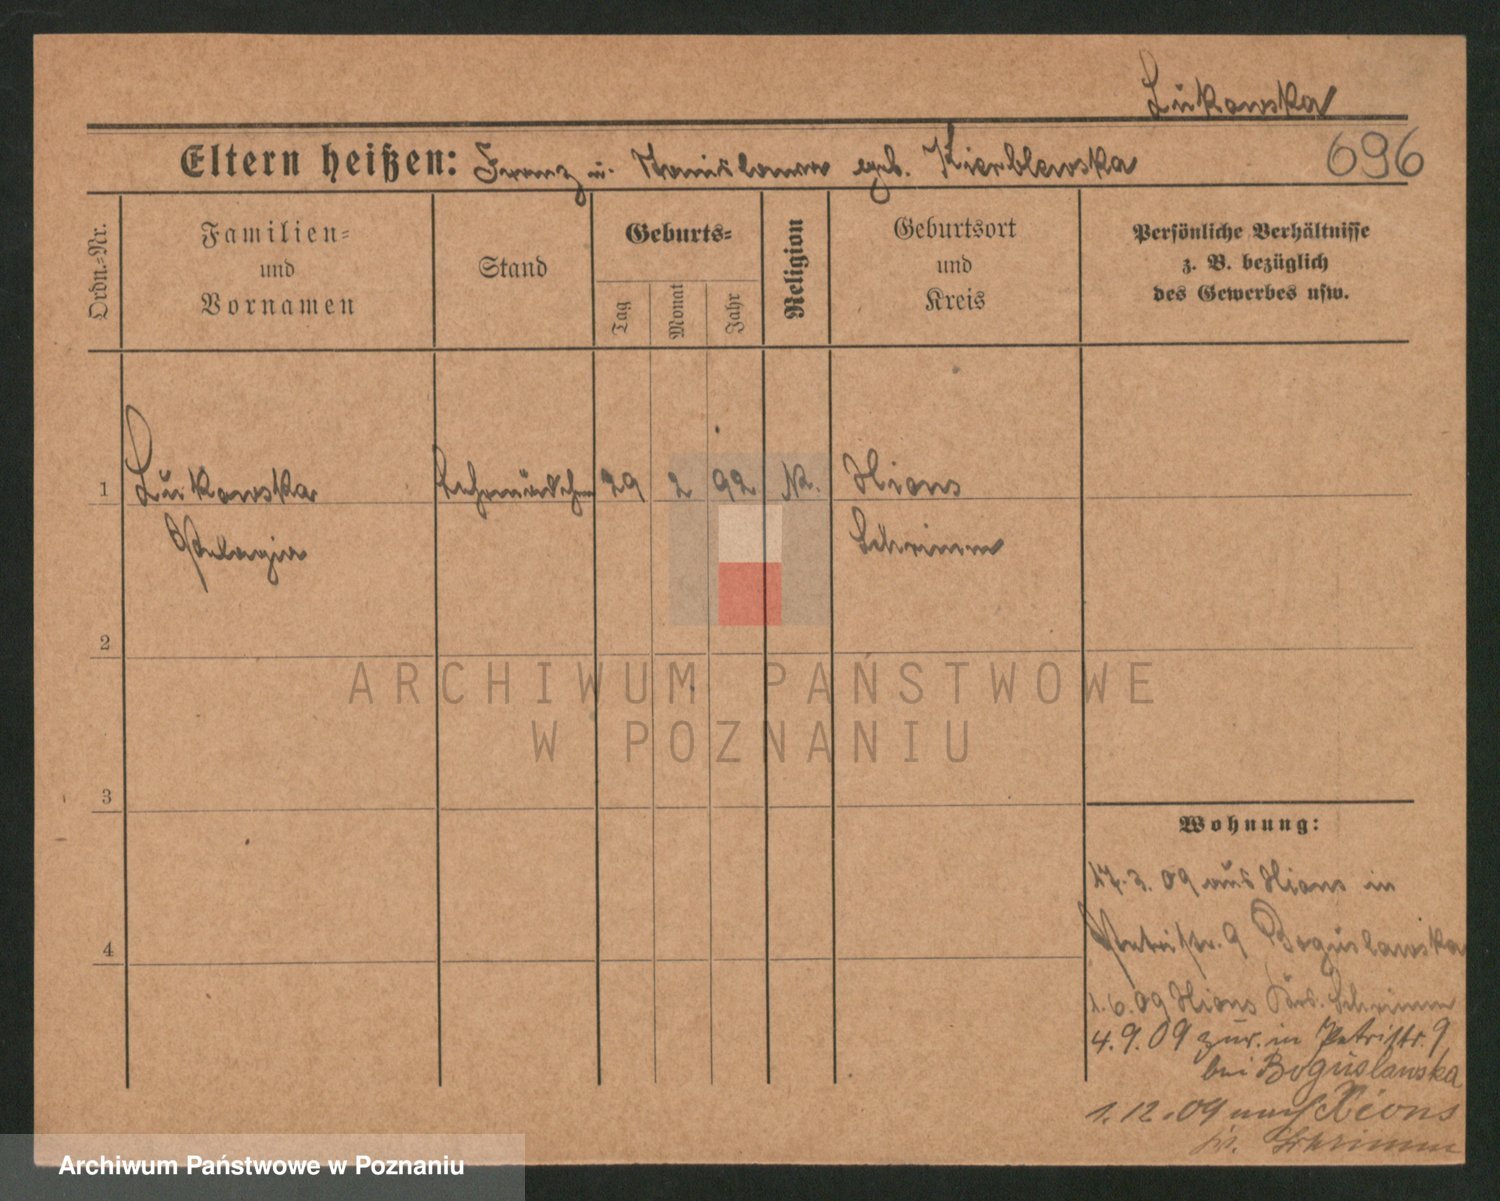 Lukowska
Eltern heißen: Franz u. Stanislawa geb. Kierblewska
696
Ordn.-Nr.
Familien-
und
Vornamen
Stand
Geburts-
Tag
Monat
Jahr
Religion
Geburtsort
und
Kreis
Persönliche Verhältnisse
z. B. bezüglich
des Gewerbes usw.
1
Lukowska
Pelagia
Lehrmädchen
29
2
92
K.
Xions
Schrimm
2
3
4
ARCHIWUM PAŃSTWOWE
W POZNANIU
Wohnung:
17.3.09 aus Xions in
Petristr. 9 Boguslawska
1.6.09 Xions Krs. Schrimm
4.9.09 zur. in Petristr. 9
bei Boguslawska
1.12.09 nach Xions
Schrimm
Archiwum Państwowe w Poznaniu